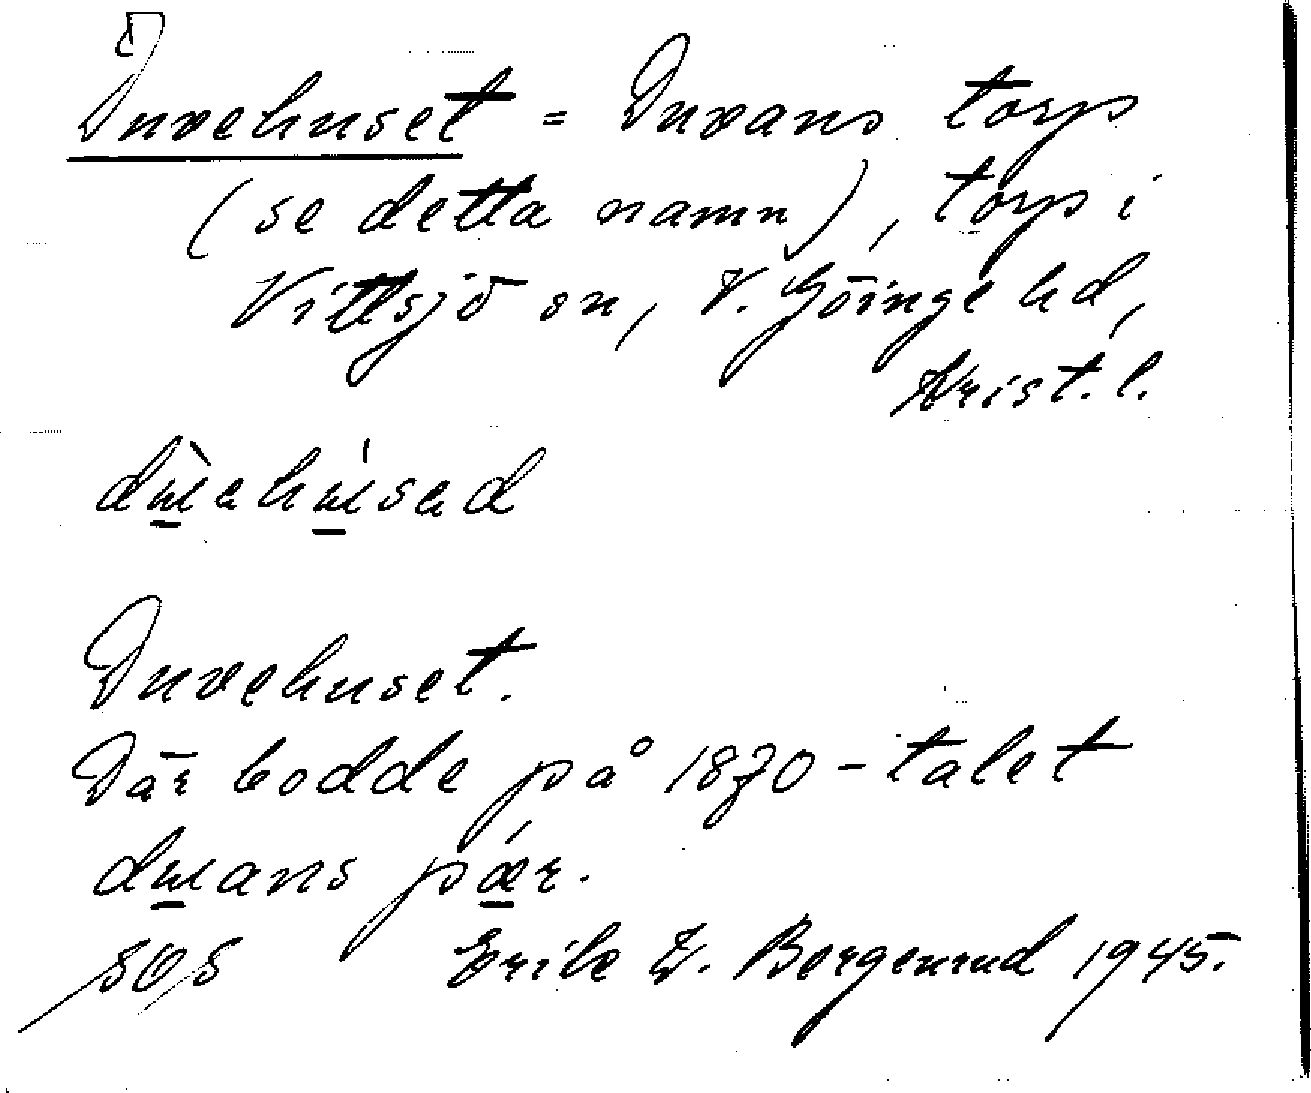 Duvehuset = Duvans torp
(se detta namn), torp i
Vittsjö sn, V. Göinge hd,
Krist. l.
Duvehuset.
Där bodde på 1870-talet
pär.
Erik W. Bergenrud 1945.